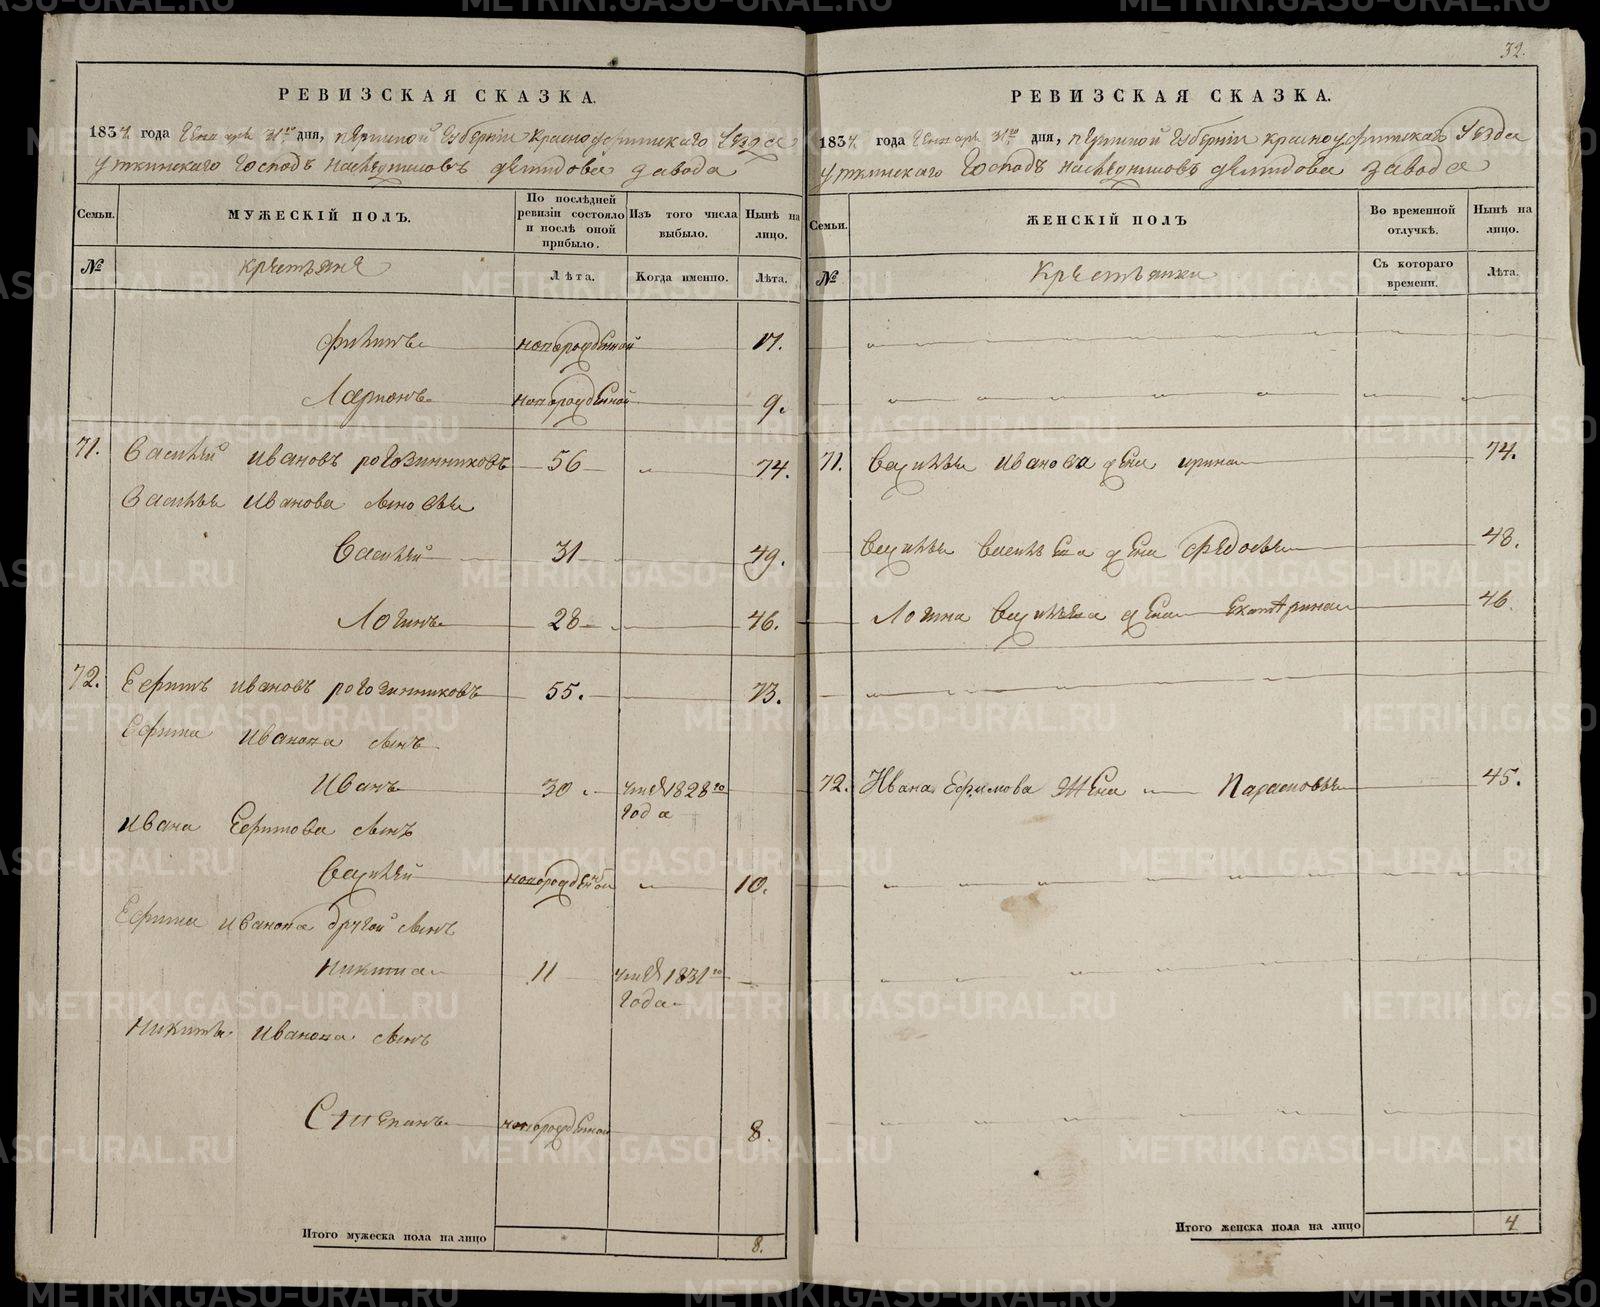 32.
РЕВИЗСКАЯ СКАЗКА.
1834. года Генваря 31го дня, Пермской Губерніи Красноуфимскаго Уезда
Уткинскаго Господъ наследниковъ Демидова завода
Семьи.
МУЖЕСКІЙ ПОЛЪ.
По послѣдней ревизіи состояло и послѣ оной прибыло.
Изъ того числа выбыло.
Нынѣ на лицо.
№
крестьяня
Лѣта.
Когда именно.
Лѣта.
Филипъ новорожденной 17.
Ларионъ новорожденной 9.
71. Василей Ивановъ Рогозинниковъ 56 74.
Василья Иванова сыновья
Василей 31 49.
Логинъ 28 46.
72. Ефимъ Ивановъ Рогозинниковъ 55. 73.
Ефима Иванова сынъ
Иванъ 30 1828го
года
Ивана Ефимова сынъ
Василей новорожденной 10.
Ефима Иванова другой сынъ
Никита 11 1831го
года
Никиты Иванова сынъ
Степанъ новорожденной 8.
Итого мужеска пола на лицо 8.
РЕВИЗСКАЯ СКАЗКА.
1834. года Генваря 31го дня, Пермской Губерніи Красноуфимскаго Уезда
Уткинскаго Господъ наследниковъ Демидова завода
Семьи.
ЖЕНСКІЙ ПОЛЪ
Во временной отлучкѣ.
Нынѣ на лицо.
№
Крестьянки
Съ котораго времени.
Лѣта.
71. Василья Иванова жена Ирина 74.
Василья Васильева жена Федосья 48.
Логина Васильева жена Екатерина 46.
72. Ивана Ефимова жена Парасковья 45.
Итого женска пола на лицо 4
METRIKI.GASO-URAL.RU